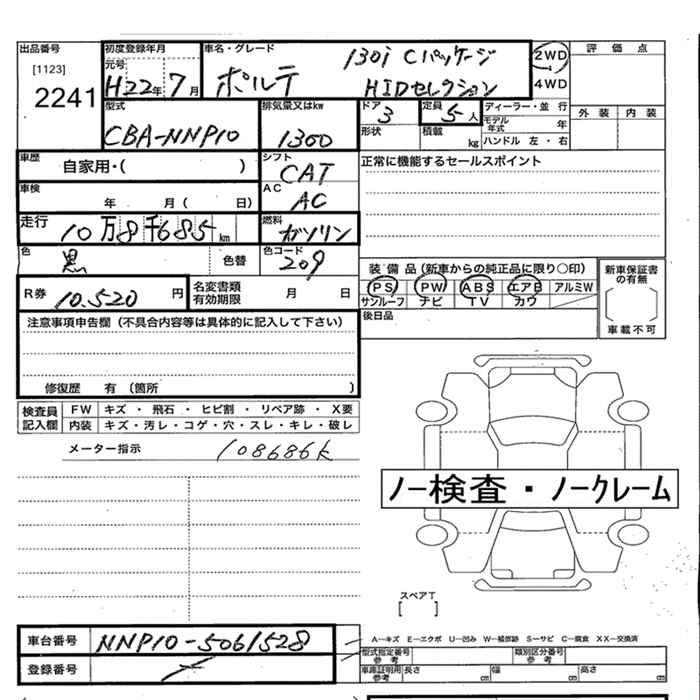 出品番号 初度登録年月 車名・グレード 130i Cパッケージ 2WD 評価点
[1123] 元号 H22年 7月 ポルテ HIDセレクション 4WD
2241 型式 排気量又はkw ドア 定員 ディーラー・並行 外装 内装
CBA-NNP10 1300 3 5人 モデル年式 年
形状 積載 kg ハンドル 左・右
車歴 自家用・( ) シフト CAT 正常に機能するセールスポイント
車検 年 月( 日) AC AC
走行 10万8千685km 燃料 ガソリン
色 黒 色替 色コード 209
R券 10.520円 名変書類有効期限 月 日
装備品(新車からの純正品に限り○印) 新車保証書の有無
PS PW ABS エアB アルミW
サンルーフ ナビ TV カワ
[ ] 車載不可
後日品
注意事項申告欄(不具合内容等は具体的に記入して下さい)
修復歴 有 (箇所 )
検査員記入欄 FW キズ・飛石・ヒビ割・リペア跡・X要
内装 キズ・汚レ・コゲ・穴・スレ・キレ・破レ
メーター指示 108686k
ノー検査・ノークレーム
スペアT
[ ]
車台番号 NNP10-5061528
登録番号
A-キズ E-エクボ U-凹み W-補修跡 S-サビ C-腐食 XX-交換済
型式指定番号 参考 類別区分番号 参考
車庫証明用 参考 長さ cm 幅 cm 高さ cm